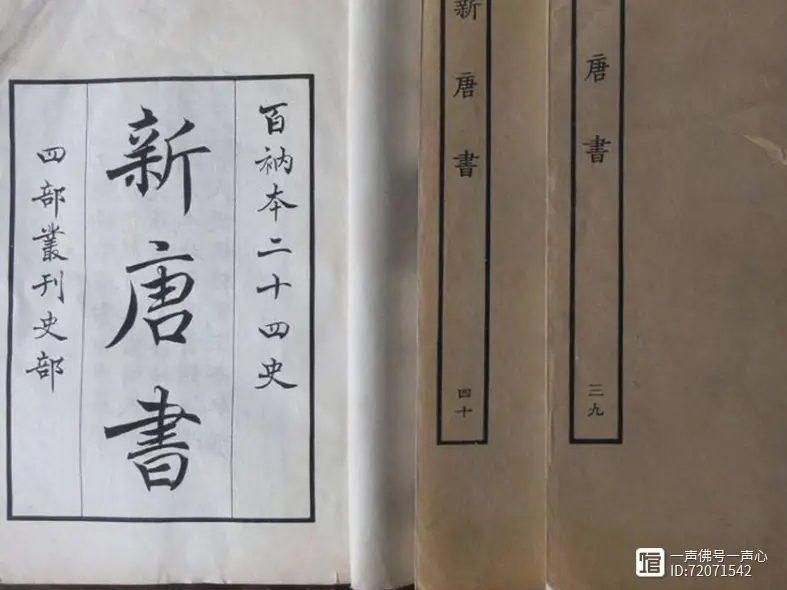 百衲本二十四史
新唐書
四部叢刊史部
新唐書
四十
唐書
三九
一声佛号一声心
ID:72071542